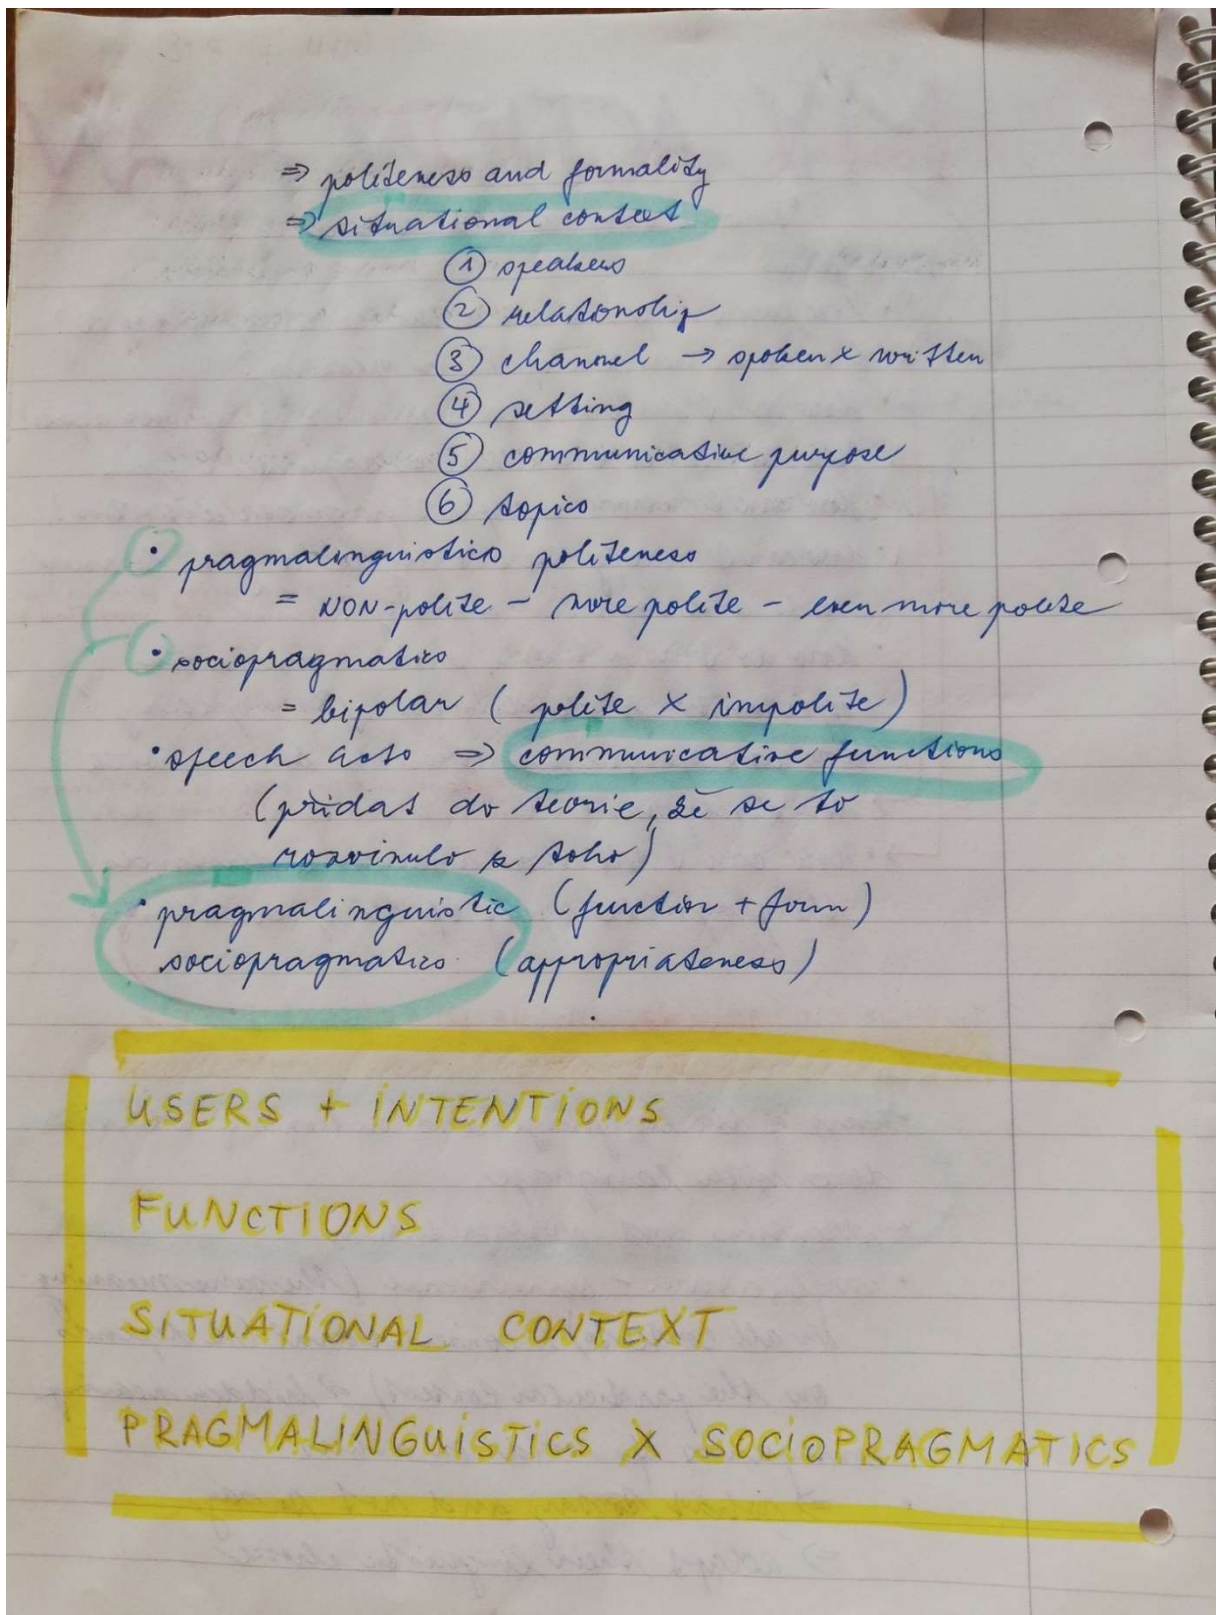 ⇒ politeness and formality
⇒ situational context
① speakers
② relationship
③ channel → spoken x written
④ setting
⑤ communicative purpose
⑥ topics
• pragmalinguistics politeness
= NON-polite - more polite - even more polite
• sociopragmatics
= bipolar ( polite x impolite )
• speech acts ⇒ communicative functions
(přidat do teorie, že se to
rozvinulo z toho)
• pragmalinguistic (function + form)
sociopragmatics (appropriateness)
USERS + INTENTIONS
FUNCTIONS
SITUATIONAL CONTEXT
PRAGMALINGUISTICS X SOCIOPRAGMATICS